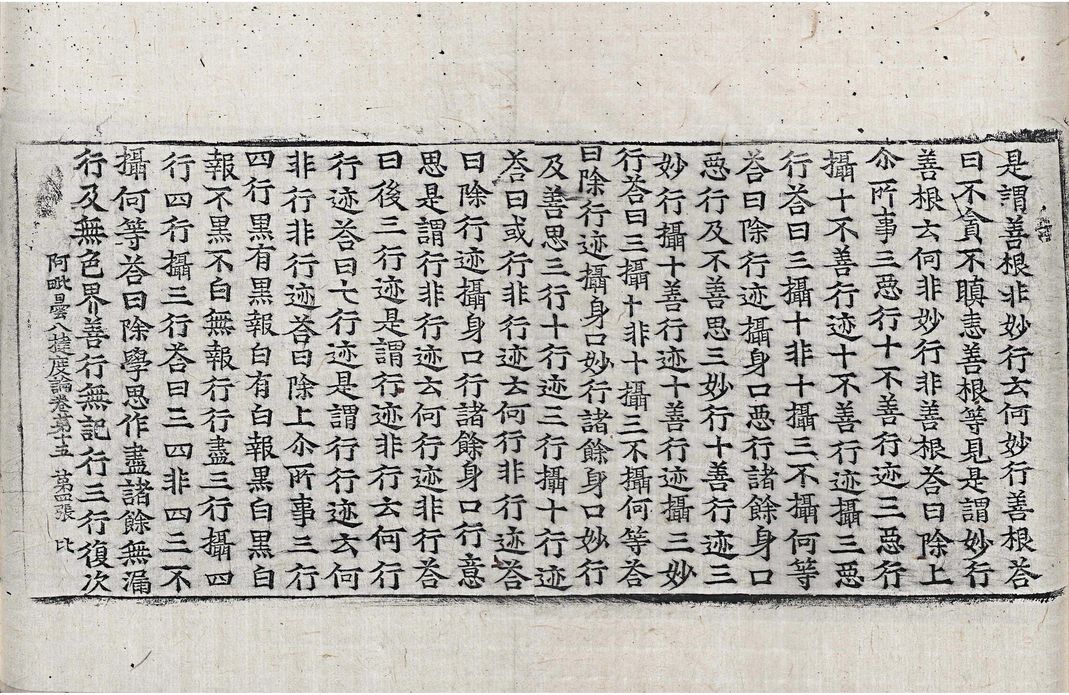 是謂善根非妙行云何妙行善根荅
曰不貪不瞋恚善根等見是謂妙行
善根云何非妙行非善根荅曰除上
尒所事三惡行十不善行迹三惡行
攝十不善行迹十不善行迹攝三惡
行荅曰三攝十非十攝三不攝何等
荅曰除行迹攝身口惡行諸餘身口
惡行及不善思三妙行十善行迹三
妙行攝十善行迹十善行迹攝三妙
行荅曰三攝十非十攝三不攝何等荅
曰除行迹攝身口妙行諸餘身口妙行
及善思三行十行迹三行攝十行迹
荅曰或行非行迹云何行非行迹荅
曰除行迹攝身口行諸餘身口行意
思是謂行非行迹云何行迹非行荅
曰後三行迹是謂行迹非行云何行
行迹荅曰七行迹是謂行行迹云何
非行非行迹荅曰除上尒所事三行
四行黒有黒報白有白報黒白黒白
報不黒不白無報行行盡三行攝四
行四行攝三行荅曰三四非四三不
攝何等荅曰除學思作盡諸餘無漏
行及無色界善行無記行三行復次
阿毗曇八揵度論卷第十五 第四張 比